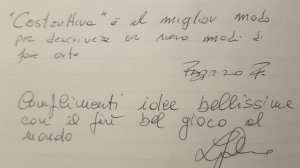 "Costruttiva" è il miglior modo
per descrivere un nuovo modo di
fare arte
Complimenti idee bellissime
con il più bel gioco al
mondo